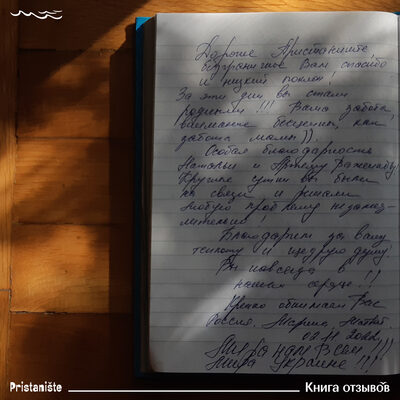 Дорогие Пристаниште,
безграничное Вам спасибо
и низкий поклон!
За эти дни вы стали
родными!!! Ваша забота,
внимание бесценны, как
забота мамы)).
Особая благодарность
Наталье и
Круглые сутки вы были
на связи и решали
любую проблему незамед-
лительно!
Благодарим за вашу
теплоту и щедрую душу!
Вы навсегда в
нашем сердце!!
Крепко обнимаем Вас
Россия, Марина,
02.11 2022
Мира нам Всем!!!
Мира Украине!!!
Pristanište
Книга отзывов